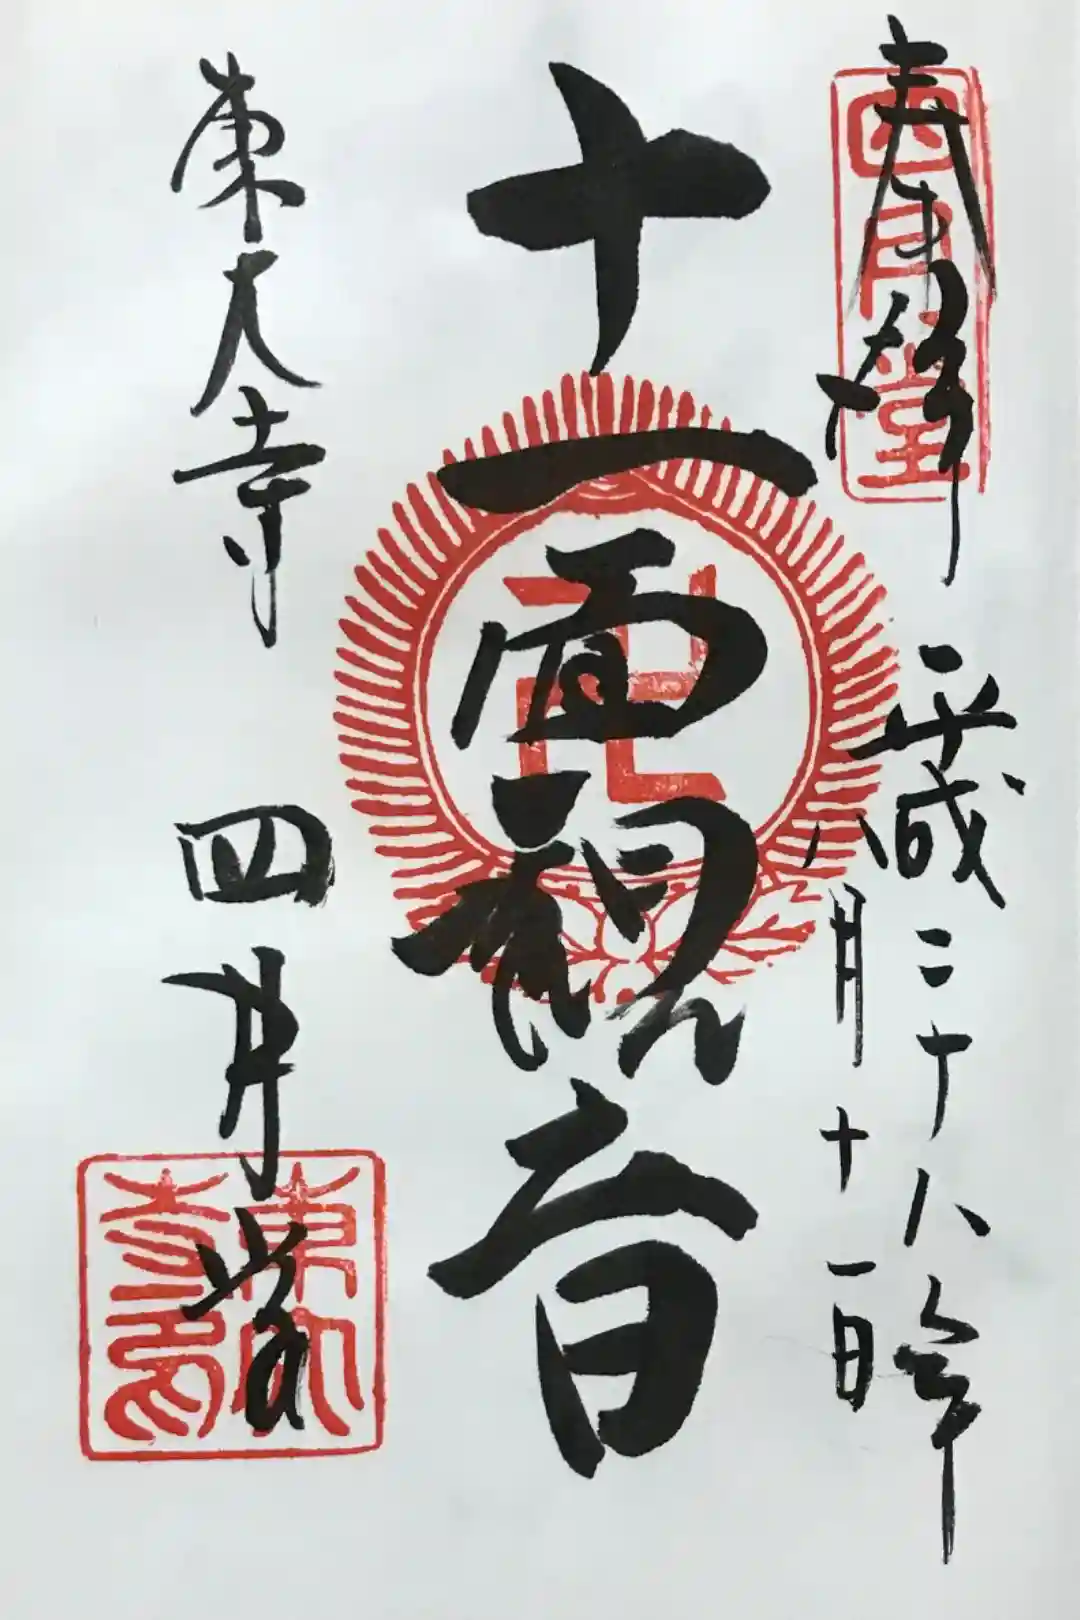 奉拝
四月堂
平成二十八年
八月十一日
十一面観音
東大寺
四月堂
東大寺印